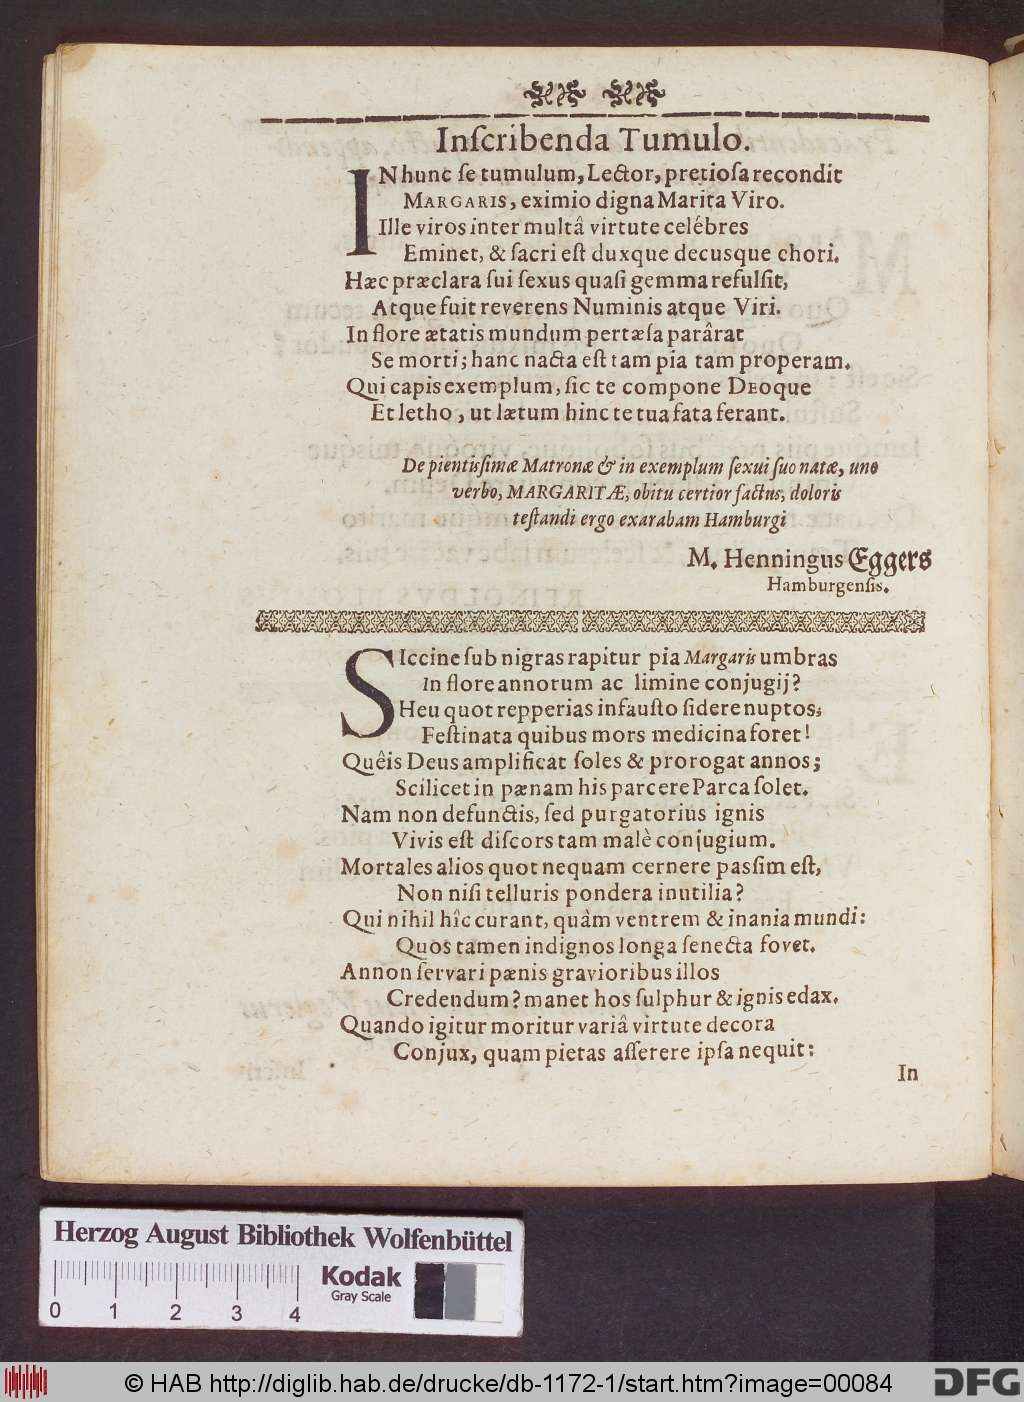 Inſcribenda Tumulo.
IN hunc ſe tumulum, Lector, pretioſa recondit
MARGARIS, eximio digna Marita Viro.
Ille viros inter multâ virtute celêbres
Eminet, & ſacri eſt duxque decusque chori.
Hæc præclara ſui ſexus quaſi gemma refulſit,
Atque fuit reverens Numinis atque Viri.
In flore ætatis mundum pertæſa parârat
Se morti; hanc nacta eſt tam pia tam properam.
Qui capis exemplum, ſic te compone DEoque
Et letho, ut lætum hinc te tua fata ferant.
De pientiſſimæ Matronæ & in exemplum ſexui ſuo natæ, uno
verbo, MARGARITÆ, obitu certior factus, doloris
teſtandi ergo exarabam Hamburgi
M. Henningus Eggers
Hamburgenſis.
SIccine ſub nigras rapitur pia Margaris umbras
In flore annorum ac limine conjugij?
Heu quot repperias infauſto ſidere nuptos;
Feſtinata quibus mors medicina foret!
Quêis Deus amplificat ſoles & prorogat annos;
Scilicet in pænam his parcere Parca ſolet.
Nam non defunctis, ſed purgatorius ignis
Vivis eſt diſcors tam malè conjugium.
Mortales alios quot nequam cernere paſſim eſt,
Non niſi telluris pondera inutilia?
Qui nihil hîc curant, quàm ventrem & inania mundi:
Quos tamen indignos longa ſenecta fovet.
Annon ſervari pænis gravioribus illos
Credendum? manet hos ſulphur & ignis edax.
Quando igitur moritur variâ virtute decora
Conjux, quam pietas aſſerere ipſa nequit:
In
Herzog August Bibliothek Wolfenbüttel
0 1 2 3 4
Kodak
Gray Scale
© HAB http://diglib.hab.de/drucke/db-1172-1/start.htm?image=00084
DFG